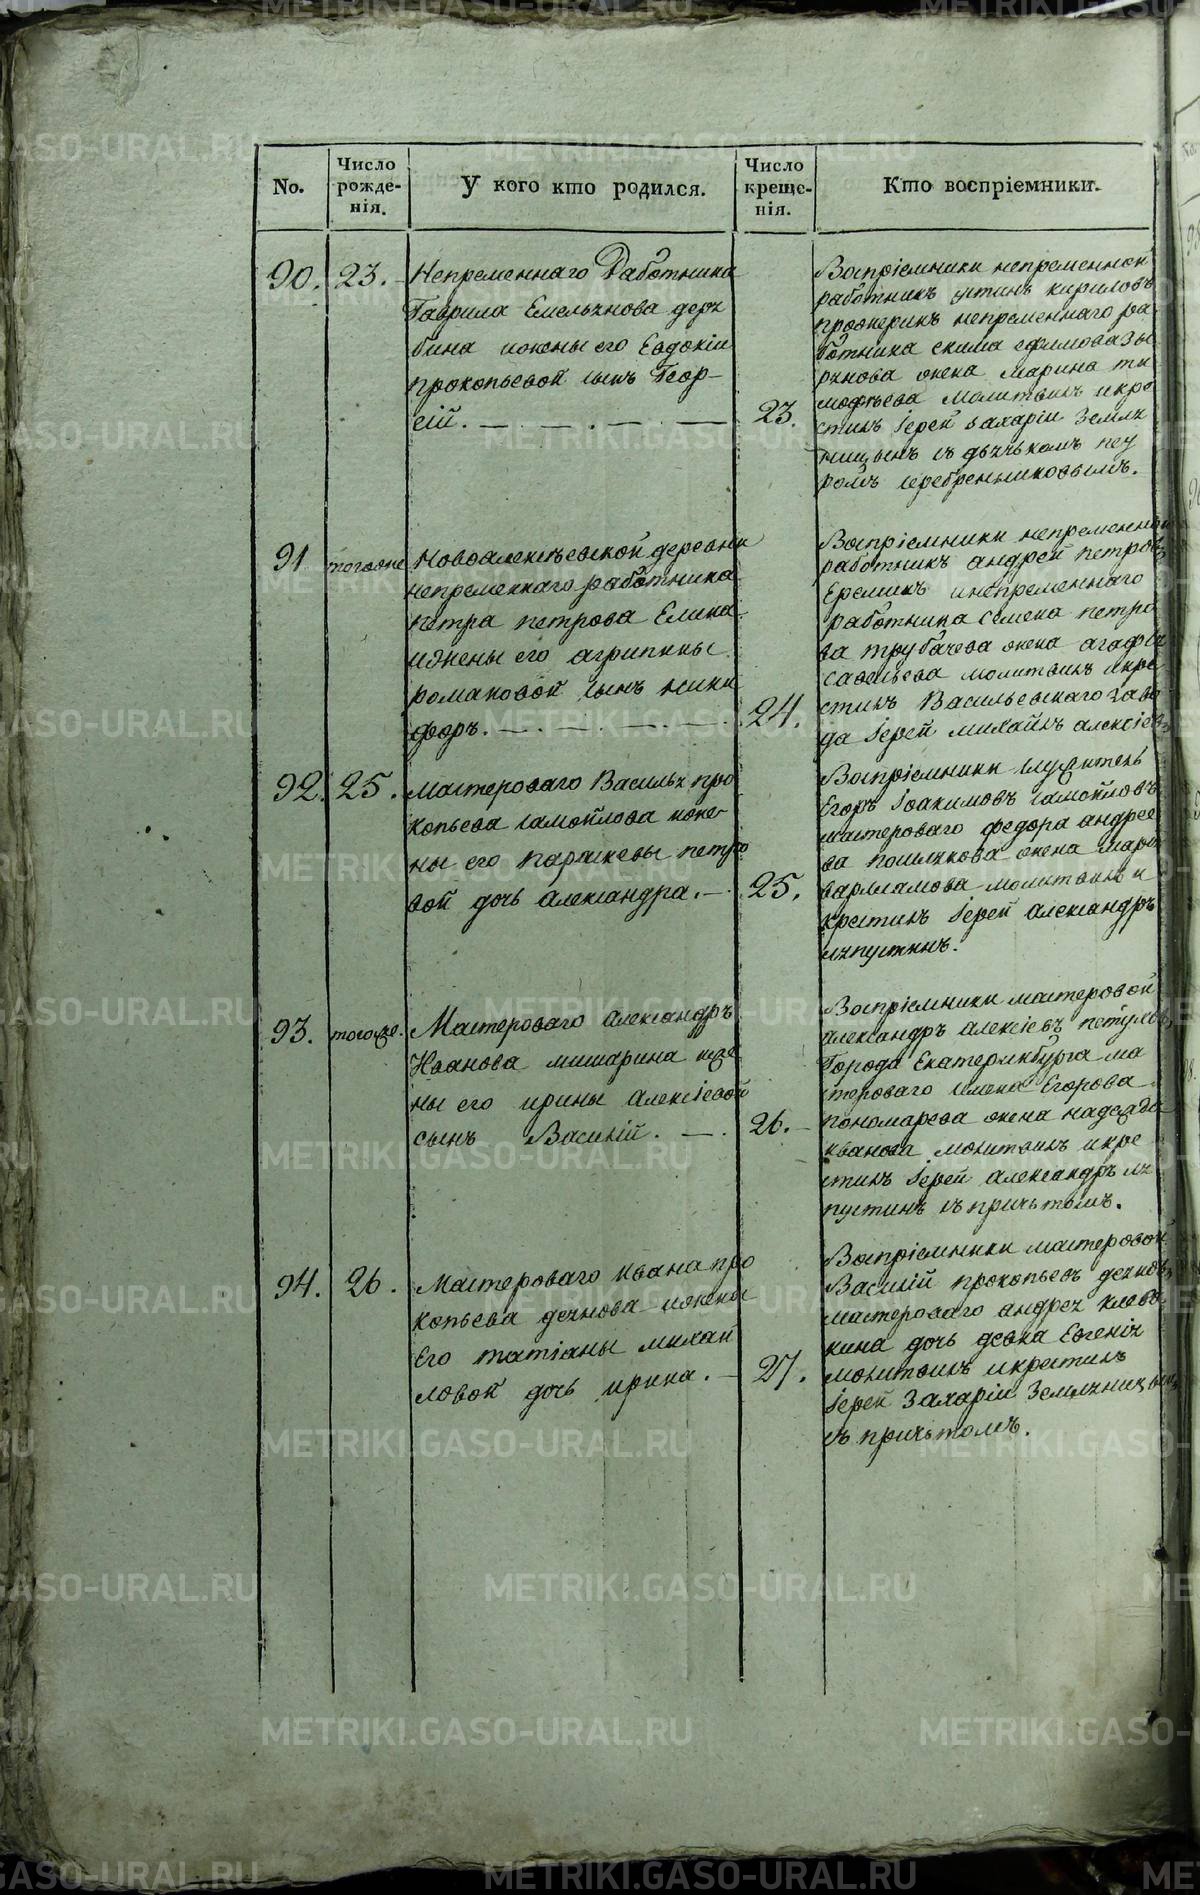 No.
Число рожде- нія.
У кого кто родился.
Число креще- нія.
Кто воспріемники.
90.
23.
Непременнаго Работника
Гаврила Емельянова деря
бина ижены его Евдокіи
прокопьевой сынъ Геор-
гій.
23.
Воспріемники непременной
работникъ устинъ кириловъ
непременнаго ра
ботника екима ефимова
жена марина ти
мофѣева молитвилъ икре
стилъ Іерей захаріи Земля
ницынъ съ дьячькомъ пет
ромъ серебренниковымъ.
91
тогоже
Новоалексѣевской деревни
непременнаго работника
петра петрова Елина
ижены его агрипины
романовой сынъ ники
форъ.
24.
Воспріемники непременной
работникъ андрей петровъ
Еремикъ инепременнаго
работника семена петро
ва трубачева жена агафья
савельева молитвилъ икре
стилъ Васильевскаго заво
да Іерей михаилъ алексіевъ
92.
25.
мастероваго Василья про
копьева самойлова иже-
ны его параскевы петро
вой дочь александра.
25.
Воспріемники служитель
Егоръ Іоакимовъ самойловъ
мастероваго федора андрее
ва полякова жена марья
варламова молитвилъ и
крестилъ Іерей александръ
ляпустинъ.
93.
тогоже.
Мастероваго александръ
Иванова мишарина иже
ны его ирины алексіевой
сынъ Василій.
26.
Воспріемники мастеровой
александръ алексіевъ петуховъ
Города Екатеринбурга ма
стероваго семена Егорова
пономарева жена надежда
иванова молитвилъ икре
стилъ Іерей александръ ля
пустинъ съ причьтомъ.
94.
26.
Мастероваго ивана про
копьева дечнова ижены
Его татіаны михай
ловой дочь ирина.
27.
Воспріемники мастеровой
Василій прокопьевъ дечновъ
мастероваго андрея клева
кина дочь девка Евгенія
молитвилъ икрестилъ
Іерей Захаріи Земляницынъ
съ причьтомъ.